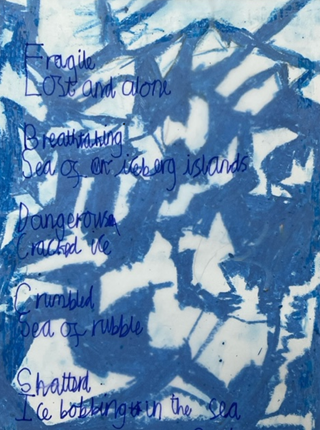 Fragile
Lost and alone
Breathtaking
Sea of iceberg islands
Dangerous
Cracked ice
Crumbled
Sea of rubble
Shatterd
Ice bobbing in the sea